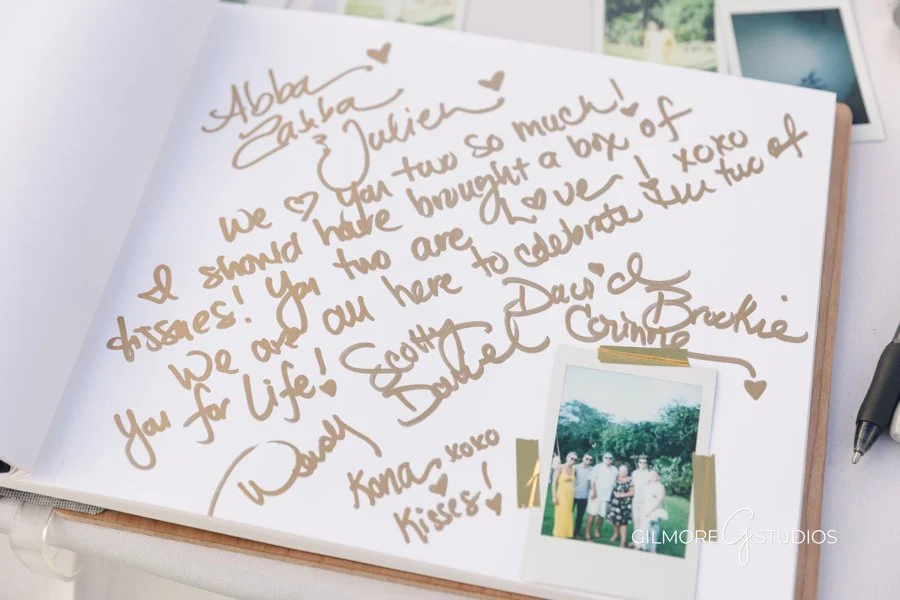 Abba
Zabba
& Julien
We ♡ you two so much!
I should have brought a box of
tissues! You two are Love! xoxo
We are all here to celebrate the two of
you for life! Scotty David Brookie
Daniel Corinne
Wendy
Kona xoxo
Kisses!
GILMORE G STUDIOS